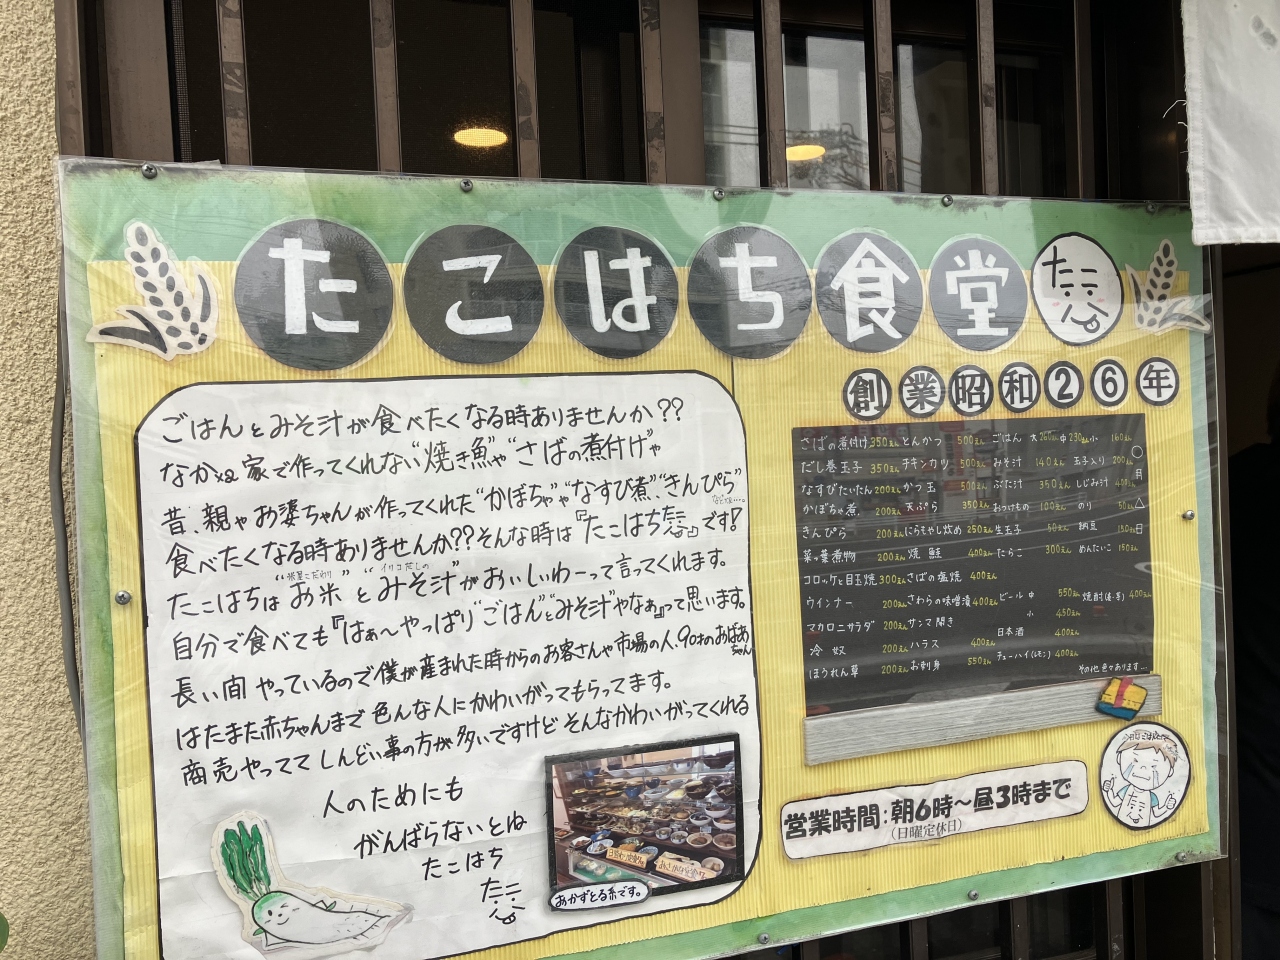 たこはち食堂
創業昭和26年
ごはんとみそ汁が食べたくなる時ありませんか??
なかなか家で作ってくれない"焼き魚"や"さばの煮付け"や
昔、親やお婆ちゃんが作ってくれた"かぼちゃ"や"なすび煮""きんぴら"
などなど…。
食べたくなる時ありませんか??そんな時は『たこはち』です!
米屋こだわり イリコだしの
たこはちは"お米"と"みそ汁"がおいしいわーって言ってくれます。
自分で食べても『はぁ〜やっぱり"ごはん"と"みそ汁"やなぁ』って思います。
長い間やっているので僕が産まれた時からのお客さんや市場の人、90才のおばあちゃん
はたまた赤ちゃんまで色んな人にかわいがってもらってます。
商売やっててしんどい事の方が多いですけどそんなかわいがってくれる
人のためにも
がんばらないとね
たこはち
おかずとる糸です。
さばの煮付け 350えん とんかつ 500えん ごはん 大260えん 中230えん 小160えん
だし巻玉子 350えん チキンカツ 500えん みそ汁 140えん 玉子入り 200えん
なすびたいたん 200えん かつ玉 500えん ぶた汁 350えん しじみ汁 400えん
かぼちゃ煮 200えん 天ぷら 350えん おつけもの 100えん のり 50えん
きんぴら 200えん にらもやし炒め 250えん 生玉子 50えん 納豆 150えん
菜っ葉煮物 200えん 焼鮭 400えん たらこ 300えん めんたいこ 150えん
コロッケと目玉焼 300えん さばの塩焼 400えん
ウインナー 200えん さわらの味噌漬 400えん ビール 中 550えん 焼酎(麦・芋) 400えん
マカロニサラダ 200えん サンマ開き 小 450えん
冷奴 200えん ハラス 400えん 日本酒 400えん
ほうれん草 200えん お刺身 550えん チューハイ(レモン) 400えん
その他色々あります…
○月△日
営業時間:朝6時〜昼3時まで
(日曜定休日)